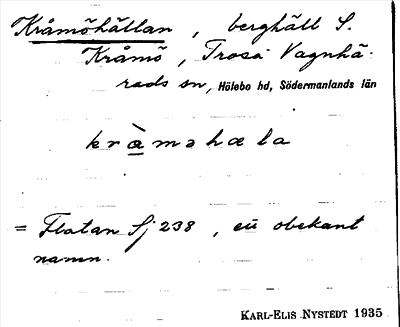 Kråmöhällan, berghäll S.
Kråmö, Trosa Vagnhä-
rads sn, Hölebo hd, Södermanlands län
kràməhæla
= Flatan Sj 238, ett obekant
namn.
KARL-ELIS NYSTEDT 1935